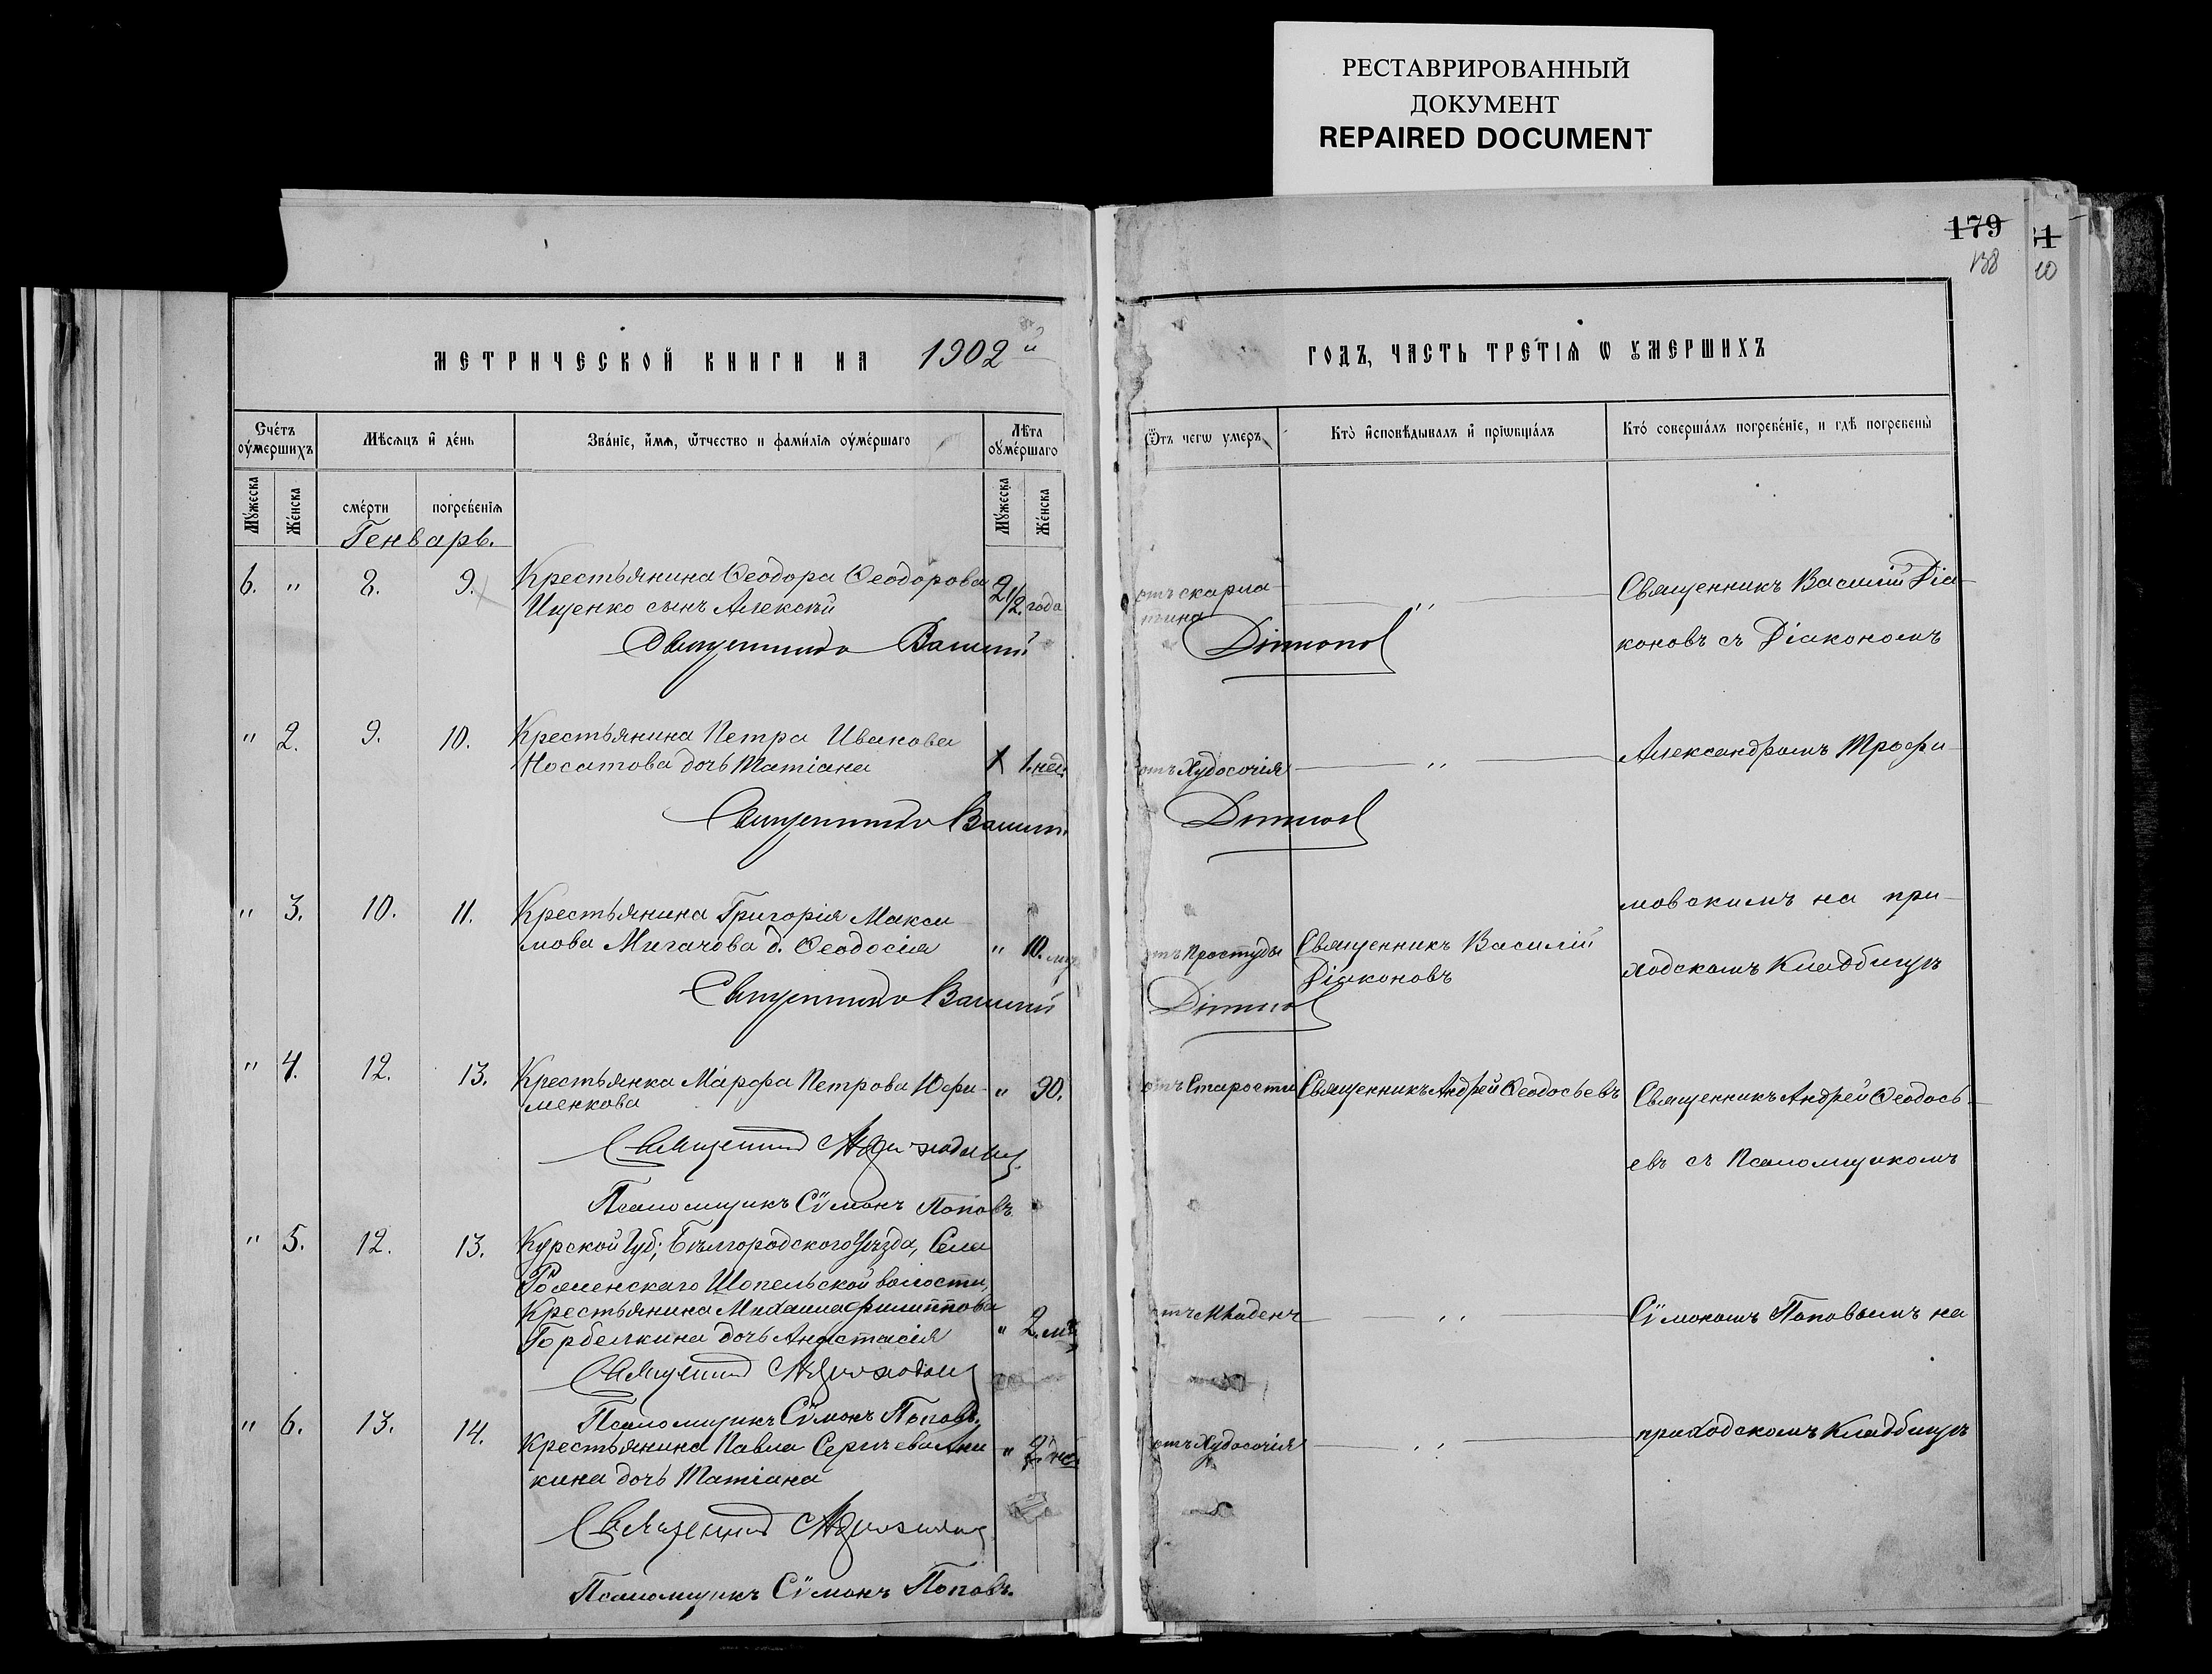 РЕСТАВРИРОВАННЫЙ
ДОКУМЕНТ
REPAIRED DOCUMENT
179
138
МЕТРИЧЕСКОЙ КНИГИ НА 1902 й
Счетъ оумершихъ
Мѣсяцъ и день
Званіе, имя, отчество и фамилія оумершаго
Лѣта оумершаго
Мужеска
Женска
смерти
погребенія
Мужеска
Женска
Генварь.
6. " 8. 9. Крестьянина Ѳеодора Ѳеодорова 2 1/2 года
Ищенко сынъ Алексѣй
Священникъ Василій
" 2. 9. 10. Крестьянина Петра Иванова
Носатова дочь Татіана 1. нед.
Священникъ Василій
" 3. 10. 11. Крестьянина Григорія Макси
мова Мигачова д. Ѳеодосія " 10.
Священникъ Василій
" 4. 12. 13. Крестьянка Марфа Петрова Юфи- " 90.
менкова
Священникъ
Псаломщикъ Сѵмонъ Поповъ
" 5. 12. 13. Курской Губ; Бѣлгородскаго Уѣзда, Села
Шопельской волости,
Крестьянина Михаила Филиппова
дочь Анастасія " 2.
Священникъ
Псаломщикъ Сѵмонъ Поповъ.
" 6. 13. 14. Крестьянина Павла Сергѣева Ани "
кина дочь Татіана
Священникъ
Псаломщикъ Сѵмонъ Поповъ.
ГОДЪ, ЧАСТЬ ТРЕТІЯ Ѡ ОУМЕРШИХЪ
Ѿтъ чегѡ умеръ
Кто исповѣдывалъ и пріѡбщалъ
Кто совершалъ погребеніе, и гдѣ погребены
отъ скарла- " Священникъ Василій Діа-
тина
Діаконовъ
коновъ съ Діакономъ
отъ Худосочія " Александромъ Трофи-
Діаконовъ
мовскимъ на при-
отъ Простуды Священникъ Василій
Діаконовъ
ходскомъ Кладбищѣ
Діаконовъ
отъ Старости Священникъ Андрей Ѳеодосьевъ Священникъ Андрей Ѳеодось-
евъ съ Псаломщикомъ
отъ Младенч " Сѵмономъ Поповымъ на
отъ Худосочія " приходскомъ Кладбищѣ